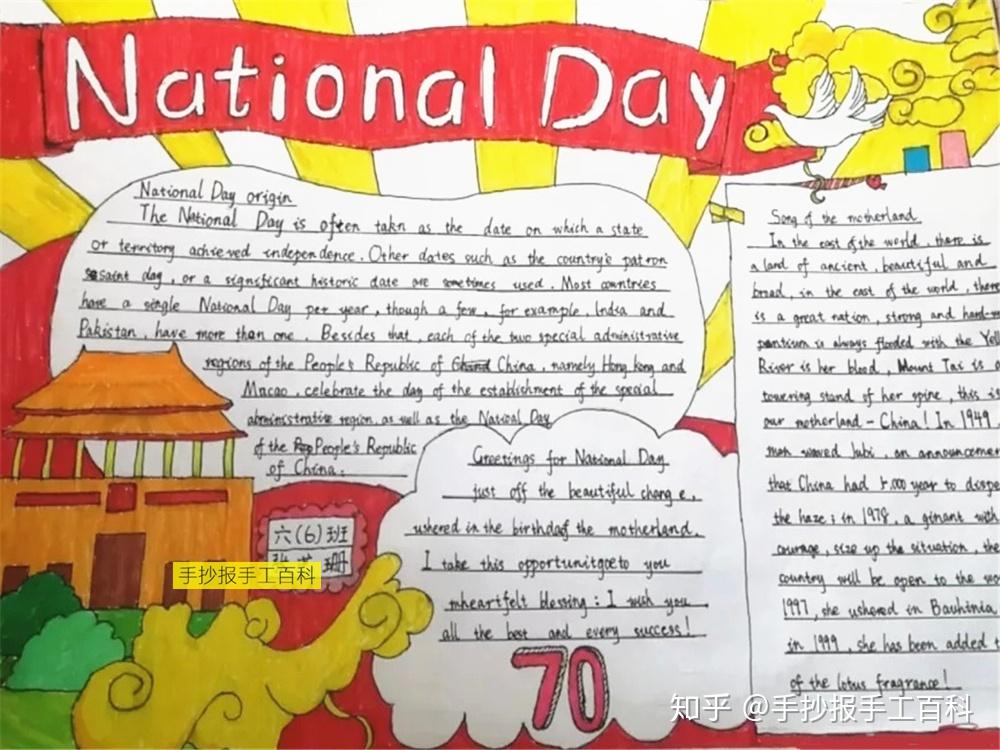 National Day
National Day origin
The National Day is often takn as the date on which a state
or territory achieved independence. Other dates such as the country's patron
saint day, or a significant historic date are sometimes used. Most countries
have a single National Day per year, though a few, for example, India and
Pakistan, have more than one. Besides that, each of the two special administrative
regions of the People's Republic of China, namely Hong Kong and
Macao, celebrate the day of the establishment of the special
administrative region, as well as the National Day
of the People's Republic
of China.
Greetings for National Day
just off the beautiful change,
ushered in the birthday of the motherland.
I take this opportunitgoeto you
mheartfelt blessing: I wish you
all the best and every success!
70
Song of the motherland
In the east of the world, there is
a land of ancient, beautiful and
broad, in the east of the world, there
is a great nation, strong and
is always flooded with the
River is her blood, Mount Tai is
towering stand of her spine, this is
our motherland - China! In 1949
man waved jubi, an
that China had 5.000 year to
the haze; in 1978, a ginant with
courage, size up the situation, the
country will be open to the
1997, she ushered in Bauhinia
in 1999, she has been added
of the lotus fragrance!
六(6)班
手抄报手工百科
知乎 @手抄报手工百科